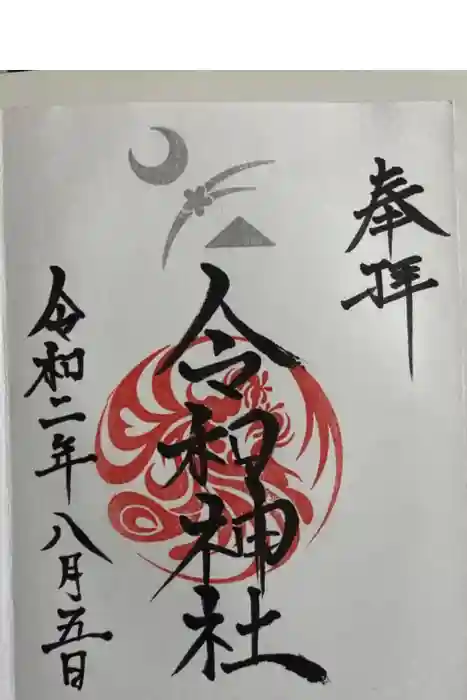 奉拝
令和神社
令和二年八月五日